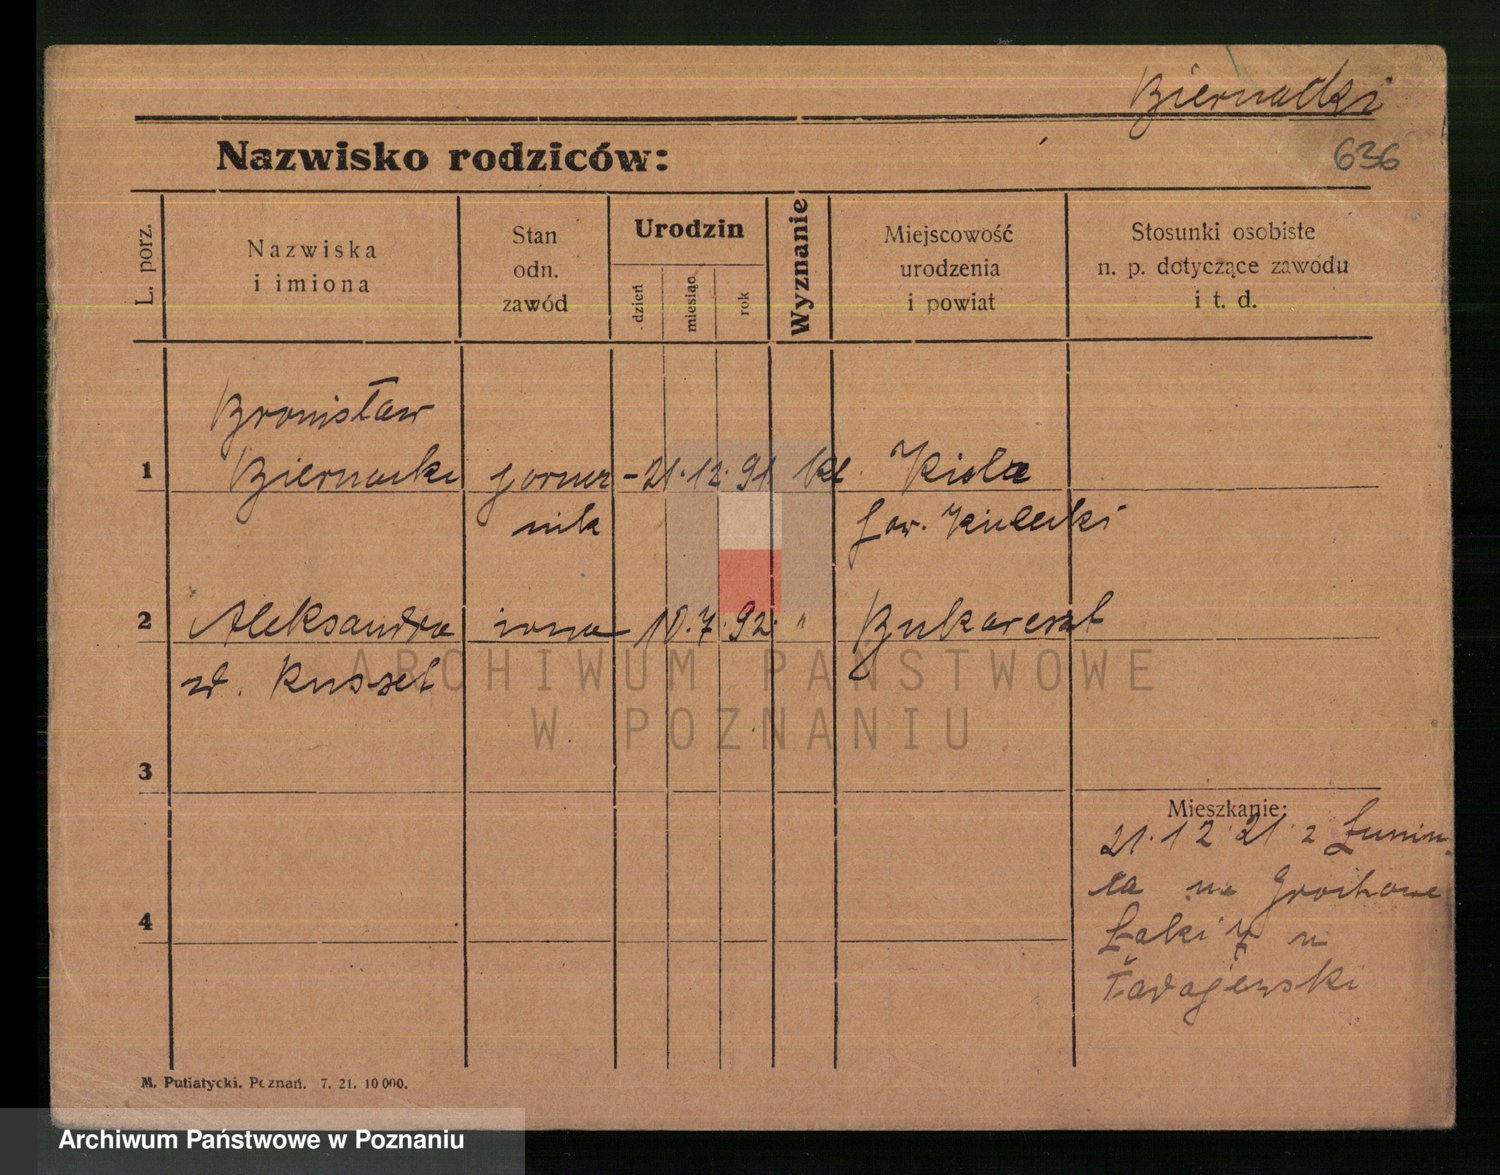 Biernacki
636
Nazwisko rodziców:
L. porz.
Nazwiska
i imiona
Stan
odn.
zawód
Urodzin
dzień
miesiąc
rok
Wyznanie
Miejscowość
urodzenia
i powiat
Stosunki osobiste
n. p. dotyczące zawodu
i t. d.
Bronisław
1 Biernacki 21. 12. 91 kt.
nik
2 Aleksandra żona 10. 7. 92. " Bukareszt
z d. Russel
ARCHIWUM PAŃSTWOWE
W POZNANIU
3
Mieszkanie:
21. 12. 21. z
na
4
Łąki
M. Putiatycki. Poznań. 7. 21. 10 000.
Archiwum Państwowe w Poznaniu